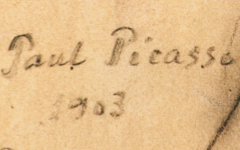 Paul Picasso
1903